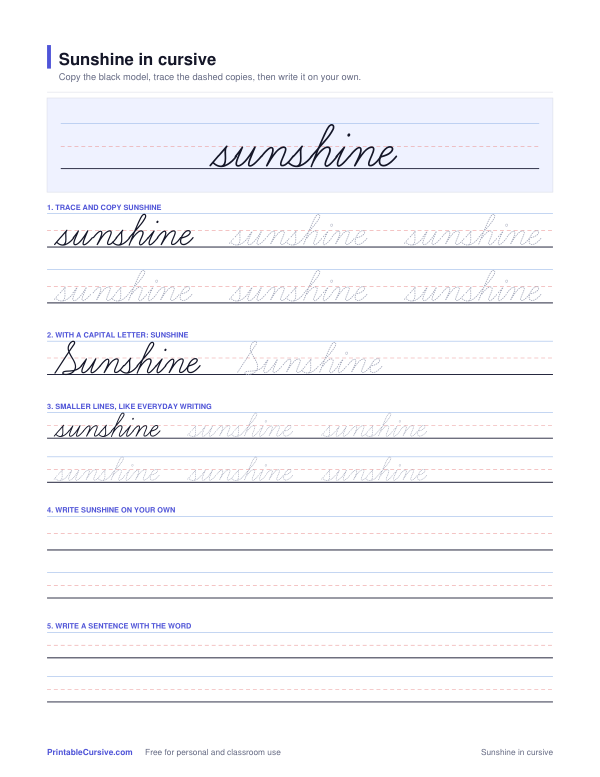 Sunshine in cursive
Copy the black model, trace the dashed copies, then write it on your own.
sunshine
1. TRACE AND COPY SUNSHINE
sunshine sunshine sunshine
sunshine sunshine sunshine
2. WITH A CAPITAL LETTER: SUNSHINE
Sunshine Sunshine
3. SMALLER LINES, LIKE EVERYDAY WRITING
sunshine sunshine sunshine
sunshine sunshine sunshine
4. WRITE SUNSHINE ON YOUR OWN
5. WRITE A SENTENCE WITH THE WORD
PrintableCursive.com Free for personal and classroom use Sunshine in cursive